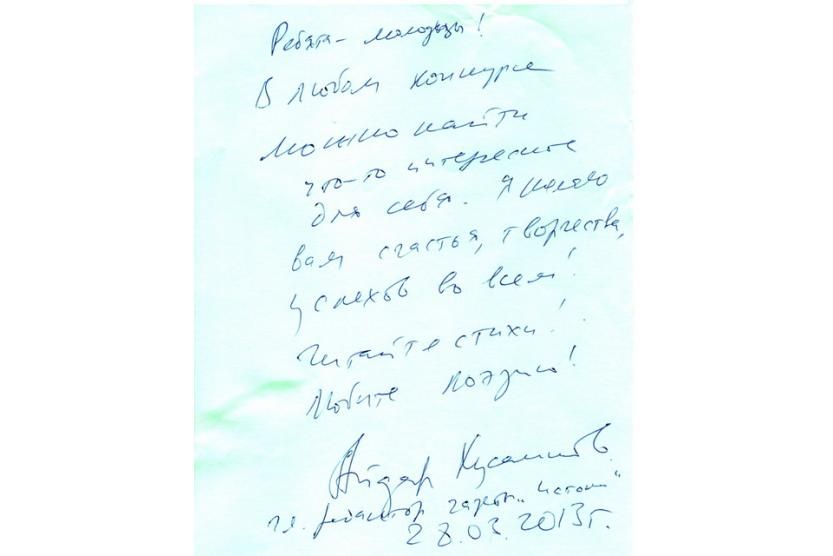 Ребята - молодцы!
В любом конкурсе
можно найти
что-то интересное
для себя. Я желаю
вам счастья, творчества,
успехов во всем!
Читайте стихи!
Любите поэзию!
Айдар Хусаинов
гл. редактор газеты "Истоки"
28.03.2013г.